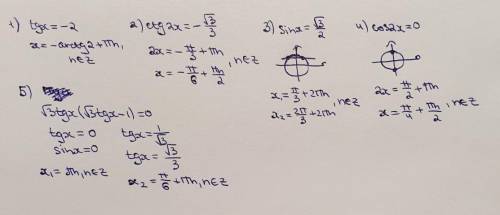 1) tgx = -2
x = -arctg2 + πn, n∈Z
2) ctg2x = -√3/3
2x = -π/3 + πn
x = -π/6 + πn/2, n∈Z
3) sinx = √3/2
x₁ = π/3 + 2πn
x₂ = 2π/3 + 2πn, n∈Z
4) cos2x = 0
2x = π/2 + πn
x = π/4 + πn/2, n∈Z
5)
√3tgx(√3tgx-1)=0
tgx = 0
sinx = 0
x₁ = πn, n∈Z
tgx = 1/√3
tgx = √3/3
x₂ = π/6 + πn, n∈Z